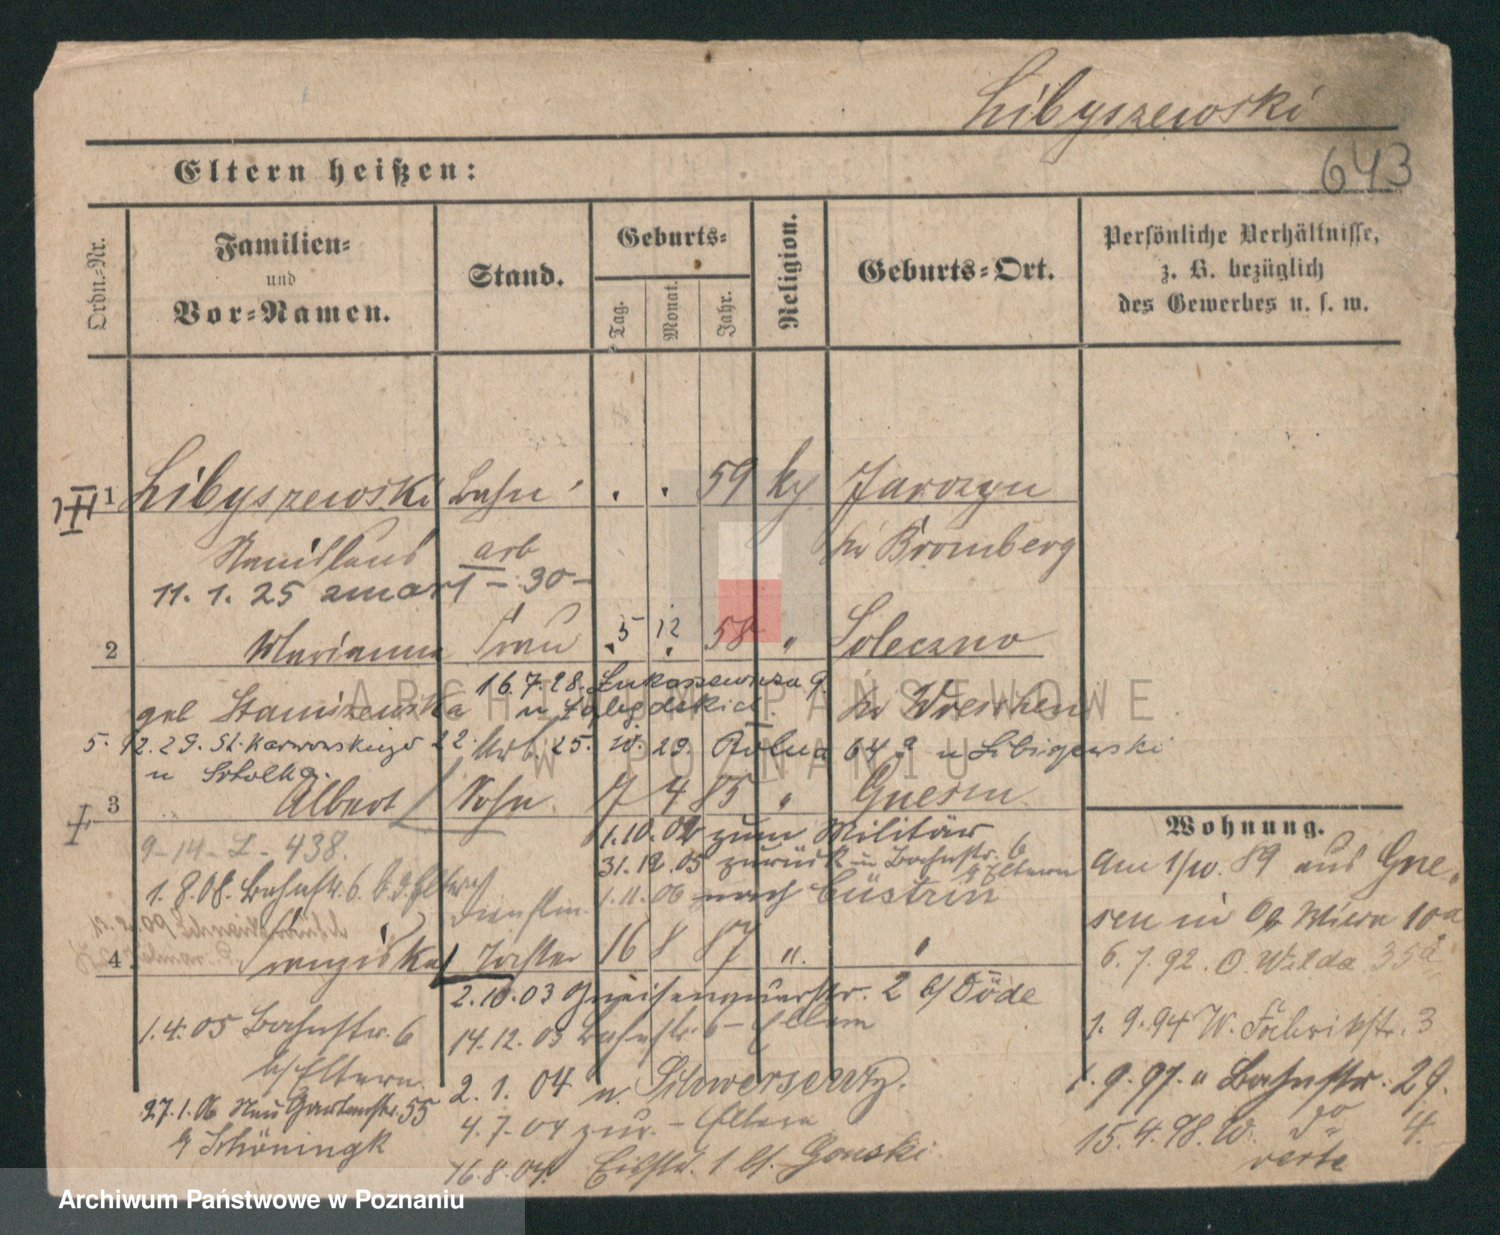 Libyszewski
643
Eltern heißen:
Ordn.-Nr.
Familien-
und
Vor-Namen.
Stand.
Geburts-
Tag.
Monat.
Jahr.
Religion.
Geburts-Ort.
Persönliche Verhältnisse,
z. B. bezüglich
des Gewerbes u. s. w.
1 Libyszewski Bahn . . 59 Jarozyn
arb Bromberg
11. 1. 25 zmarł - 30 -
2 Marianna Frau 5 12 58 " Soleczno
16.7.28. Łukaszewicza 9.
u
geb Staniszewska Wreschen
5. 12. 29. St. Karwowskiego 22. 25. 10. 29. Rolna 64 u
u
3 Albert Sohn 7 4 85 " Gnesen
1.10.02 zum Militär
9-14-L-438.
31.12.05 zurück u Bahnstr. 6
b/ Eltern
1.8.08. Bahnstr. 6 b. d. Eltern
1.11.06 nach Cüstrin
4 Franziska Tochter 16 8 87 " "
2.10.03 Gneisenauerstr. 2 b/ Döde
1.4.05 Bahnstr. 6
b/ Eltern.
14.12.03 Bahnstr. 6 - Eltern
27.1.06 Neue Gartenstr. 55
b/ Schöningk
2. 1. 04 n. Schwersenz.
4.7.04 zur. - Eltern
16.8.04. 1 b/. Gonski
Wohnung.
Am 1/10. 89 aus Gne-
sen in O/ Wilda 10a
6. 7. 92. O. Wilda 35a
1. 9. 94 W. Fabrikstr. 3
1. 9. 97. " Bahnstr. 29.
15. 4. 98. W. do 4.
verte
ARCHIWUM PAŃSTWOWE
W POZNANIU
Archiwum Państwowe w Poznaniu